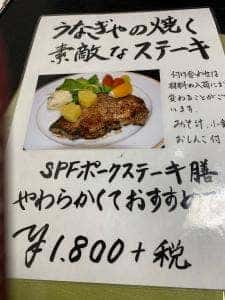 うなぎやの焼く
素敵なステーキ
付け合わせは
材料の入荷にま
変わることがご
います。
みそ汁、小
おしんこ付
SPFポークステーキ膳
やわらかくておすすめ
¥1.800+税